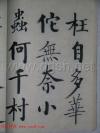 枉自多華
佗無奈小
蟲何千村